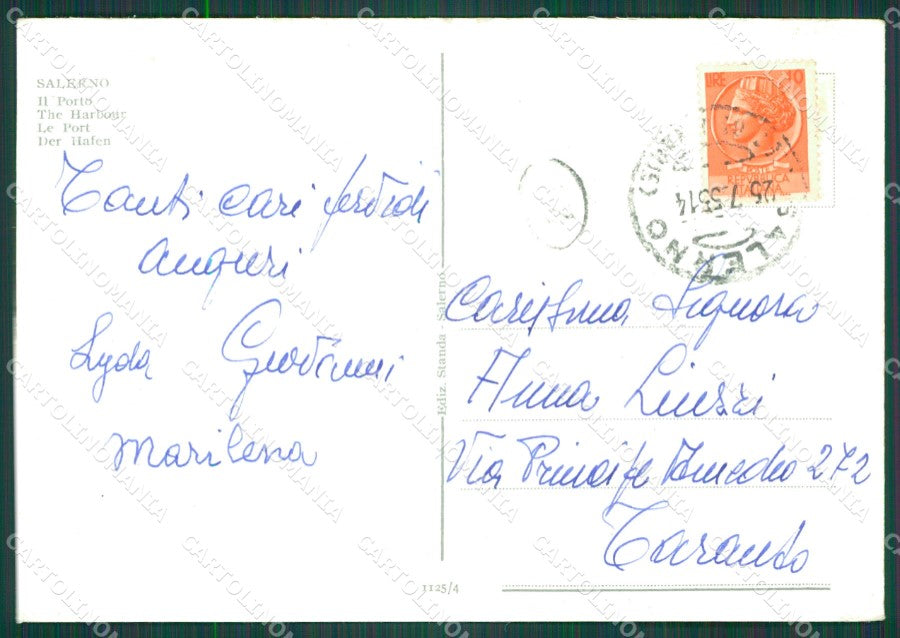 SALERNO
Il Porto
The Harbour
Le Port
Der Hafen
Tanti cari fervidi
auguri
Lyda Giovanni
Marilena
Ediz. Standa - Salerno
1125/4
LIRE 10
POSTE
REPVBBLICA
SALERNO
25.7.55 14
Carissima Signora
Anna Liuzzi
Via Principe Amedeo 272
Taranto
CARTOLINOMANIA